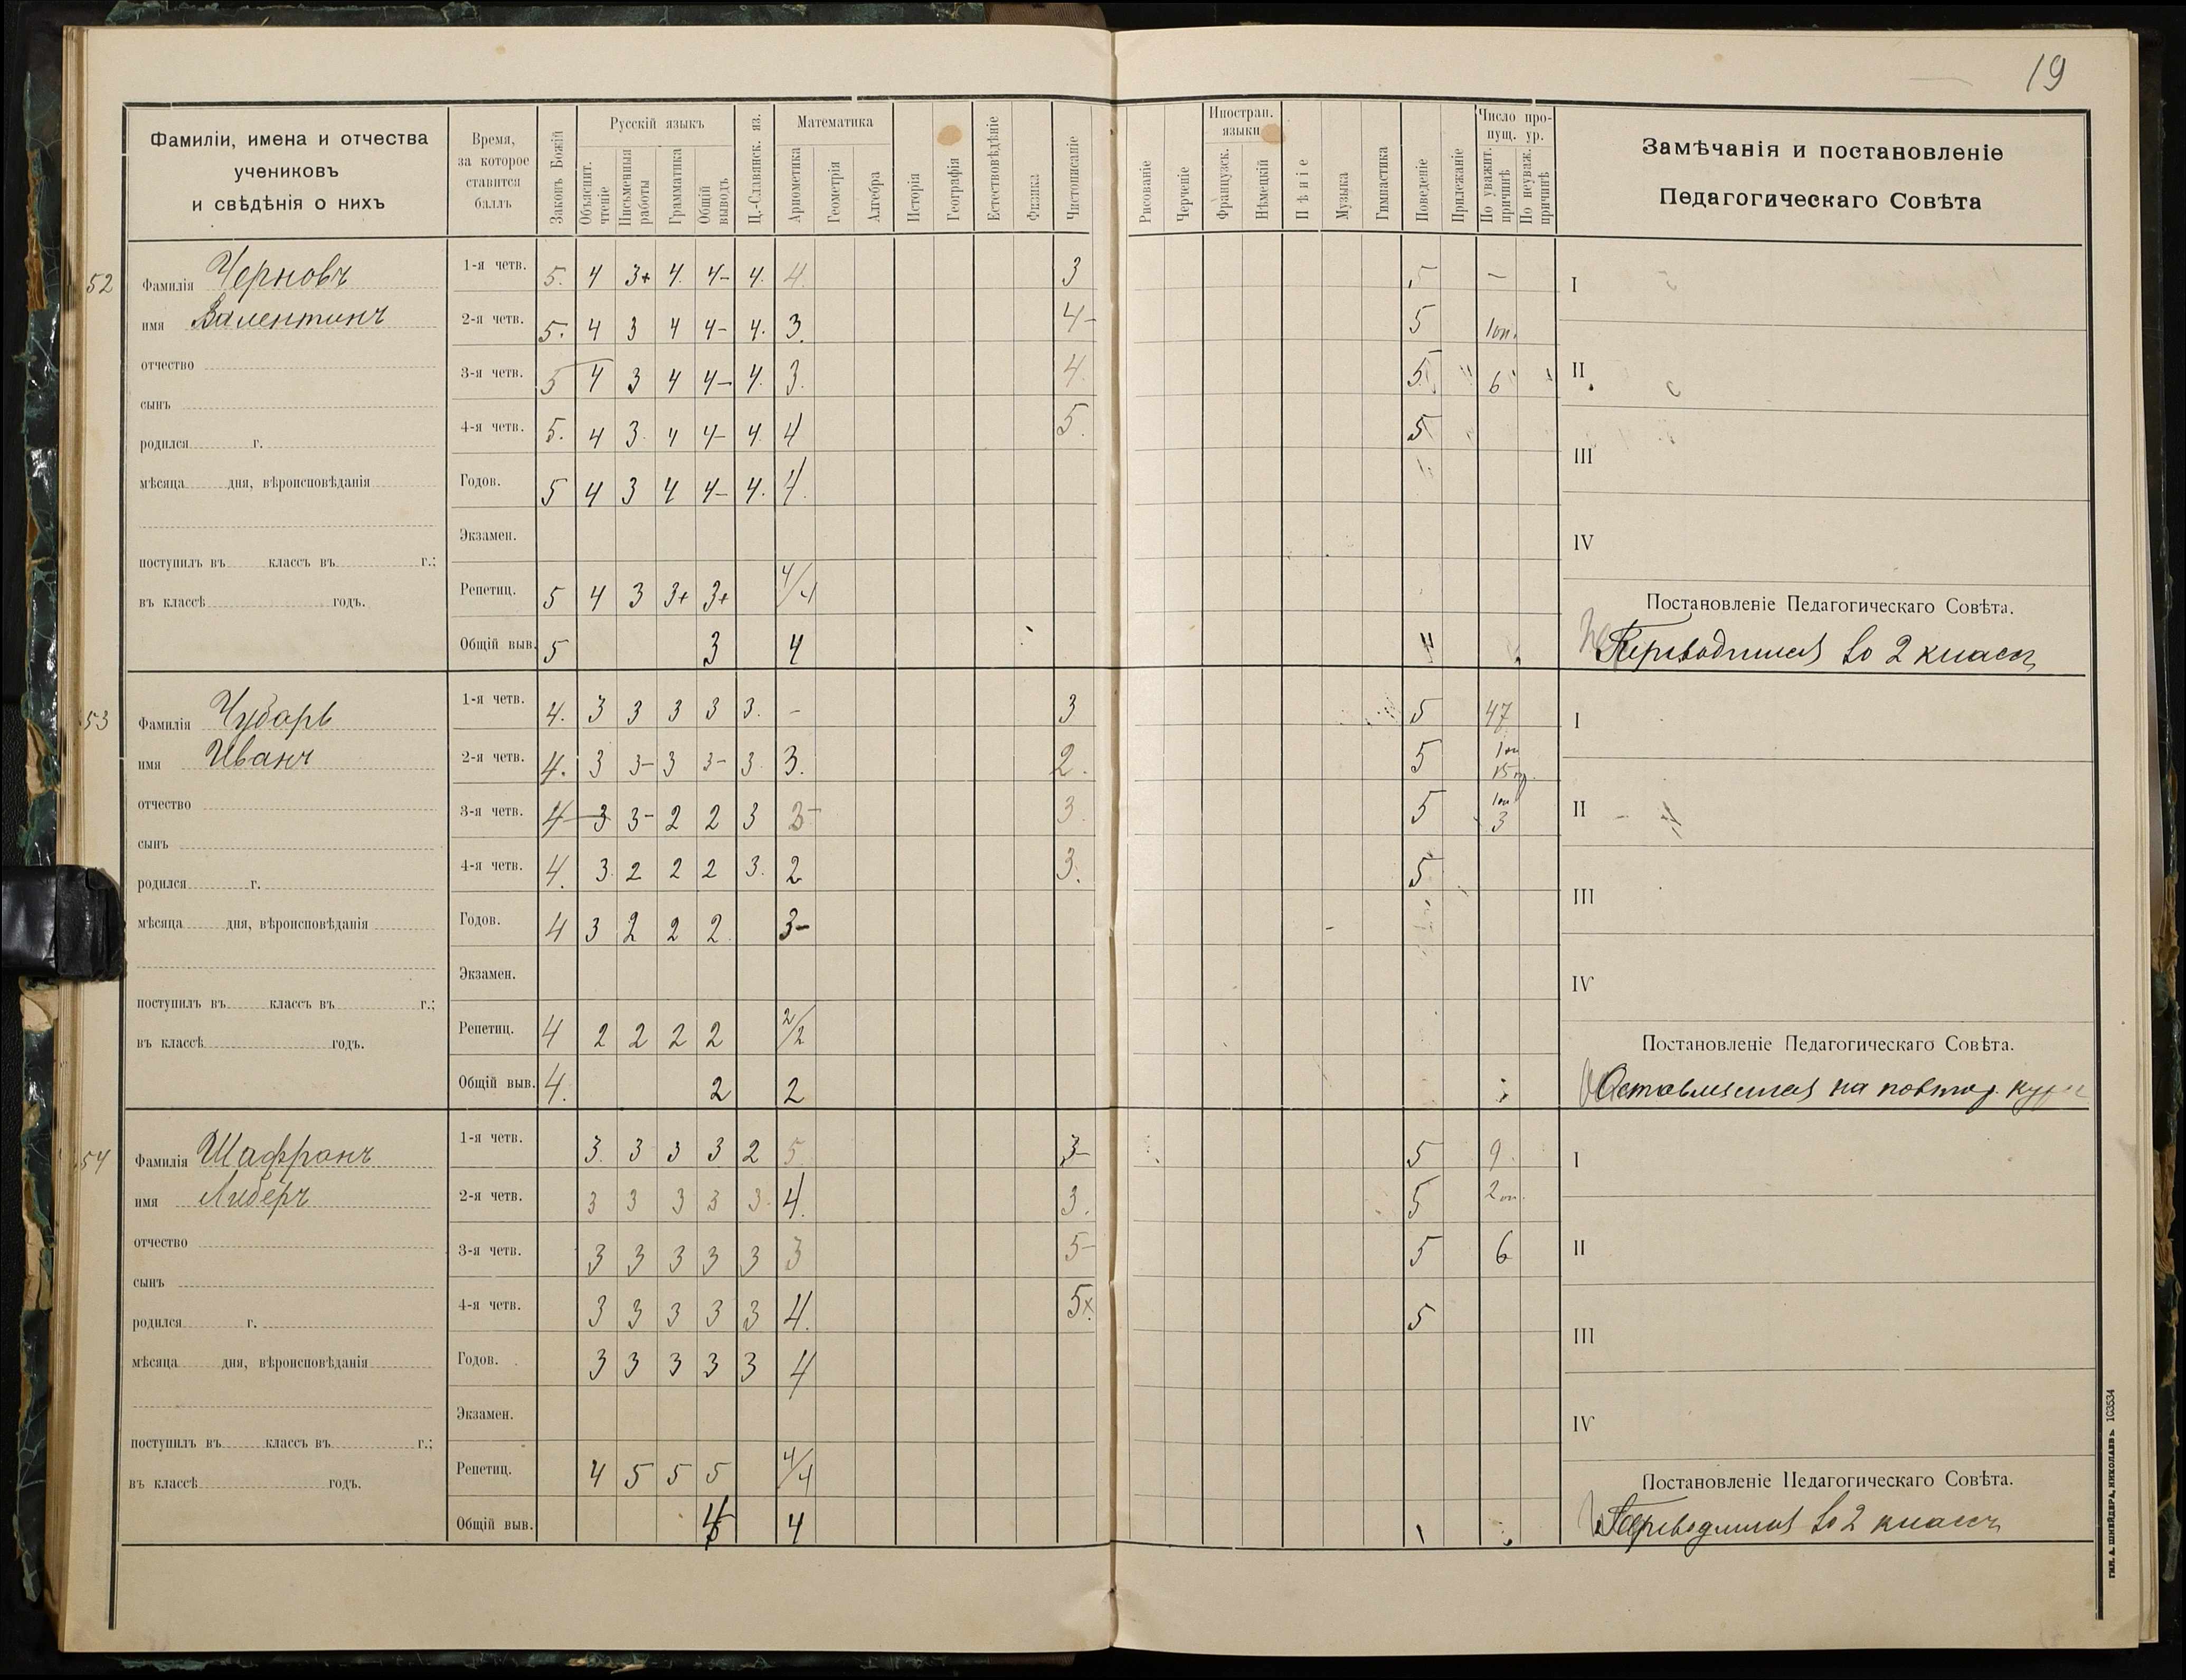 19
Фамиліи, имена и отчества
учениковъ
и свѣдѣнія о нихъ
Время,
за которое
ставится
баллъ
Законъ Божій
Русскій языкъ
Объяснит. чтеніе
Письменныя работы
Грамматика
Общій выводъ
Ц.-Славянск. яз.
Математика
Ариометика
Геометрія
Алгебра
Исторія
Географія
Естествовѣдѣніе
Физика
Чистописаніе
Рисованіе
Черченіе
Иностран. языки
Французск.
Нѣмецкій
Пѣніе
Музыка
Гимнастика
Поведеніе
Прилежаніе
Число пропущ. ур.
По уважит. причинѣ
По неуваж. причинѣ
Замѣчанія и постановленіе
Педагогическаго Совѣта
52
Фамилія Черновъ
имя Валентинъ
отчество
сынъ
родился г.
мѣсяца дня, вѣроисповѣданія
поступилъ въ классъ въ г.;
въ классѣ годъ.
1-я четв. 5. 4 3+ 4. 4- 4. 4. 3 5 –
2-я четв. 5. 4 3 4 4- 4. 3. 4- 5 1 оп.
3-я четв. 5 4 3 4 4- 4. 3. 4. 5 6
4-я четв. 5. 4 3. 4 4- 4. 4 5. 5
Годов. 5 4 3 4 4- 4. 4.
Экзамен.
Репетиц. 5 4 3 3+ 3+ 4/4
Общій выв. 5 3 4 4
I
II
III
IV
Постановленіе Педагогическаго Совѣта.
Переводится во 2 классъ
53
Фамилія Чубарь
имя Иванъ
отчество
сынъ
родился г.
мѣсяца дня, вѣроисповѣданія
поступилъ въ классъ въ г.;
въ классѣ годъ.
1-я четв. 4. 3 3 3 3 3. – 3 5 47
2-я четв. 4. 3 3- 3 3- 3. 3. 2. 5 1 оп 15
3-я четв. 4 3 3- 2 2 3 3- 3. 5 1 оп 3
4-я четв. 4. 3. 2 2 2 3. 2 3. 5
Годов. 4 3 2 2 2. 3-
Экзамен.
Репетиц. 4 2 2 2 2 2/2
Общій выв. 4. 2 2
I
II
III
IV
Постановленіе Педагогическаго Совѣта.
Оставляется на повтор. курс
54
Фамилія Шафранъ
имя Либеръ
отчество
сынъ
родился г.
мѣсяца дня, вѣроисповѣданія
поступилъ въ классъ въ г.;
въ классѣ годъ.
1-я четв. 3. 3 3 3 2 5 3- 5 9.
2-я четв. 3 3 3 3 3. 4. 3. 5 2 оп.
3-я четв. 3 3 3 3 3 3 5- 5 6
4-я четв. 3 3 3 3 3 4. 5. 5
Годов. 3 3 3 3 3 4
Экзамен.
Репетиц. 4 5 5 5 4/4
Общій выв. 4 4
I
II
III
IV
Постановленіе Педагогическаго Совѣта.
Переводится во 2 классъ
ТИП. А. ШНЕЙДЕРА, НИКОЛАЕВЪ. 103534